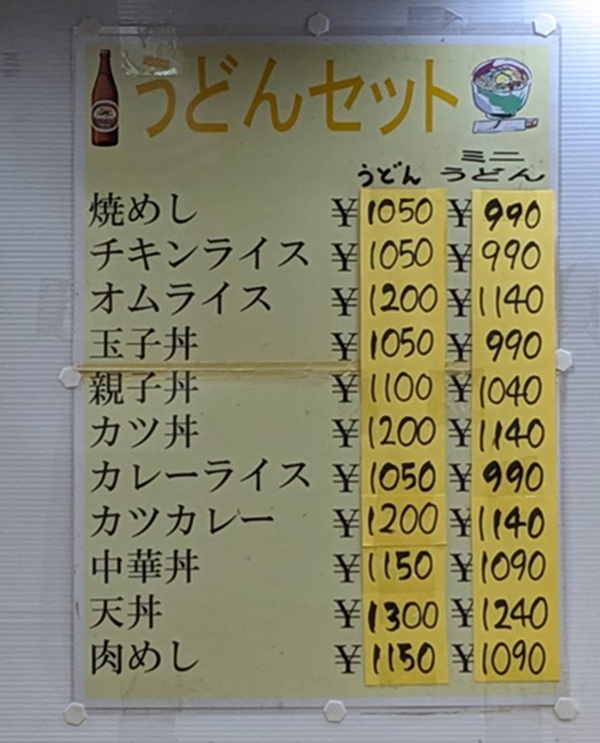 うどんセット
うどん ミニうどん
焼めし ¥1050 ¥990
チキンライス ¥1050 ¥990
オムライス ¥1200 ¥1140
玉子丼 ¥1050 ¥990
親子丼 ¥1100 ¥1040
カツ丼 ¥1200 ¥1140
カレーライス ¥1050 ¥990
カツカレー ¥1200 ¥1140
中華丼 ¥1150 ¥1090
天丼 ¥1300 ¥1240
肉めし ¥1150 ¥1090